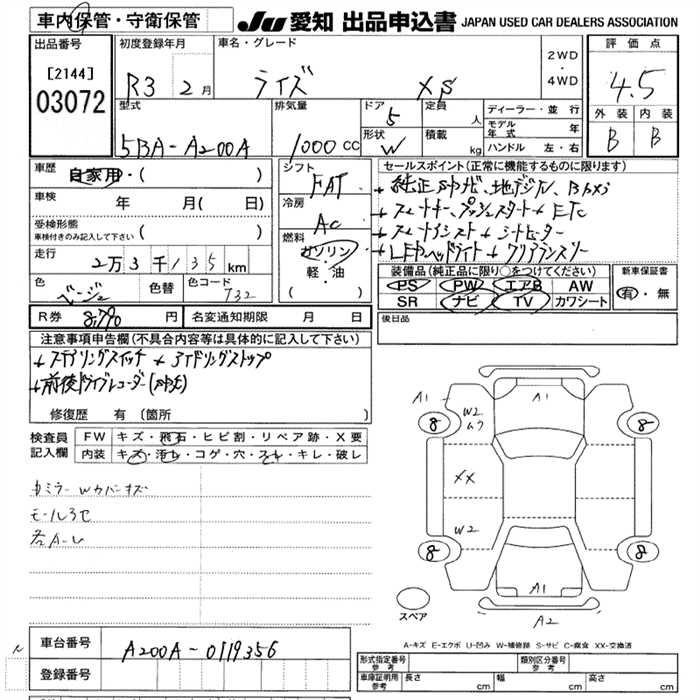 車内保管・守衛保管
JU 愛知 出品申込書 JAPAN USED CAR DEALERS ASSOCIATION
出品番号
[2144]
03072
初度登録年月
R3年 2月
車名・グレード
ライズ
2WD
・
4WD
評価点
4.5
外装 内装
B B
型式
5BA-A200A
排気量
1000 CC
ドア
5
形状
W
定員
人
積載
kg
ディーラー・並行
モデル年式 年
ハンドル 左・右
車歴
自家用・( )
車検
年 月( 日)
受検形態
車検付きのみ記入して下さい ( )
走行
2万3千135km
色
ベージュ
色替
色コード
T32
シフト
FAT
冷房
AC
燃料
ガソリン
軽・油
( )
セールスポイント(正常に機能するものに限ります)
装備品(純正品に限り○をつけてください)
PS PW エアB AW
SR ナビ TV カワシート
新車保証書
有・無
R券
8,790 円
名変通知期限 月 日
後日品
注意事項申告欄(不具合内容等は具体的に記入して下さい)
ステアリングスイッチ アイドリングストップ
前後ドライブレコーダー
修復歴 有(箇所 )
検査員
記入欄
FW キズ・飛石・ヒビ割・リペア跡・X要
内装 キズ・汚れ・コゲ・穴・スレ・キレ・破レ
モール
各A-U
A1
W2
8
A1
8
XX
W2
8
A1
8
A2
スペア
A-キズ E-エクボ U-凹み W-補修跡 S-サビ C-腐食 XX-交換済
車台番号
A200A-0119356
登録番号
形式指定番号
参考
類別区分番号
参考
車庫証明用
参考
長さ cm 幅 cm 高さ cm